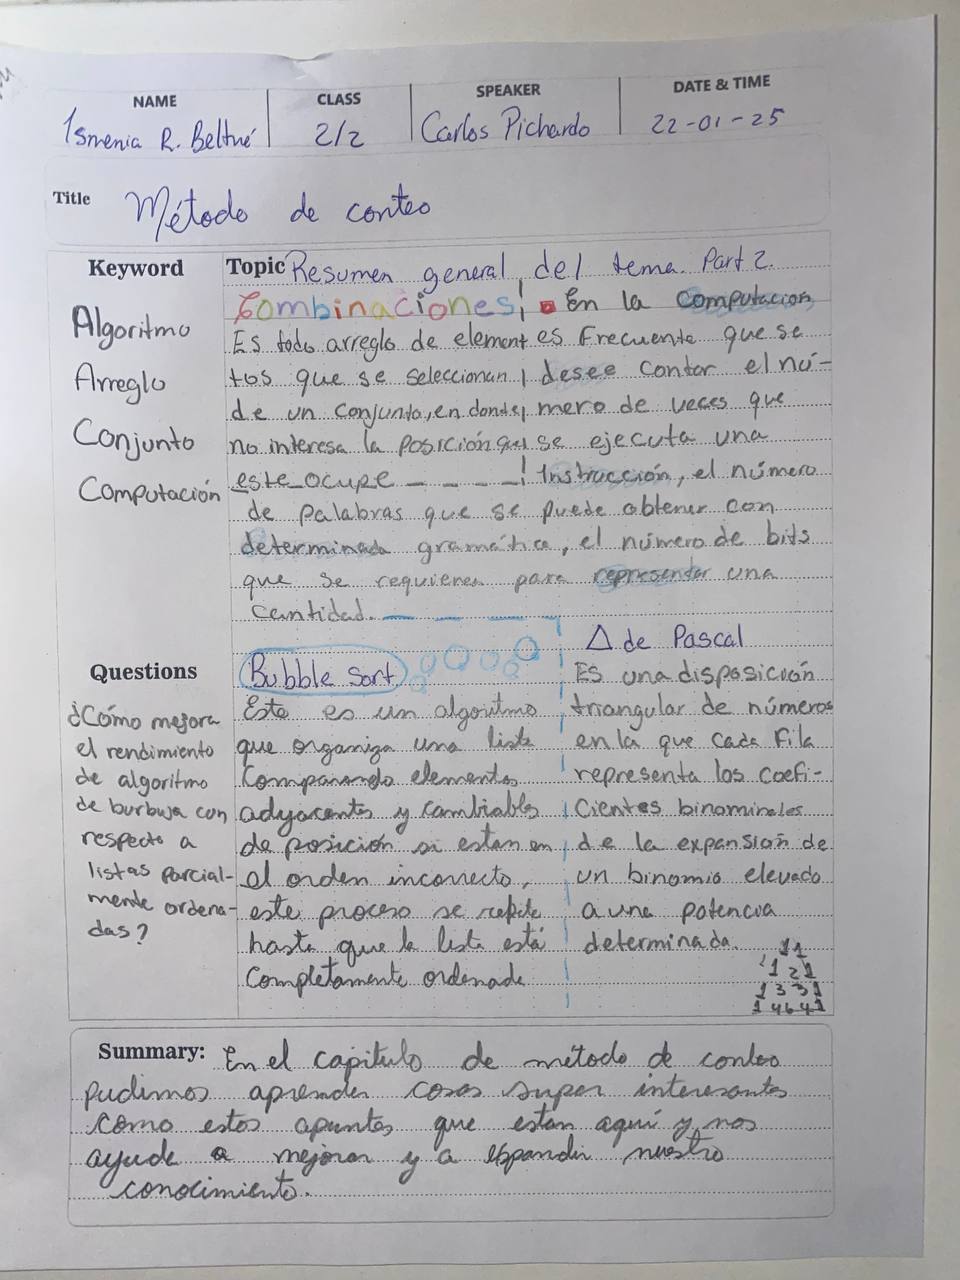 NAME CLASS SPEAKER DATE & TIME
Ismenia R. Beltré 2/2 Carlos Pichardo 22-01-25
Title Método de conteo
Keyword
Algoritmo
Arreglo
Conjunto
Computación
Topic Resumen general del tema. Part 2.
Combinaciones
Es todo arreglo de element
tos que se seleccionan
de un conjunto, en donde
no interesa la posición que
este ocupe
En la computacion,
es Frecuente que se
desee contar el nú-
mero de veces que
se ejecuta una
Instrucción, el número
de palabras que se puede obtener con
determinada gramática, el número de bits
que se requieren para representar una
cantidad.
Questions
¿Cómo mejora
el rendimiento
de algoritmo
de burbuja con
respecto a
listas parcial-
mente ordena-
das?
Bubble sort
Este es un algoritmo
que organiza una lista
Comparando elementos
adyacentes y cambiables
de posición si estan en
el orden incorrecto,
este proceso se repite
hasta que la lista está
Completamente ordenada
Δ de Pascal
Es una disposición
triangular de números
en la que cada Fila
representa los coefi-
cientes binominales
de la expansión de
un binomio elevado
a una potencia
determinada.
1 1
1 2 1
1 3 3 1
1 4 6 4 1
Summary: En el capitulo de método de conteo
pudimos aprender cosas super interesantes
como estos apuntes que estan aquí y nos
ayude a mejorar y a espandir nuestro
conocimiento.